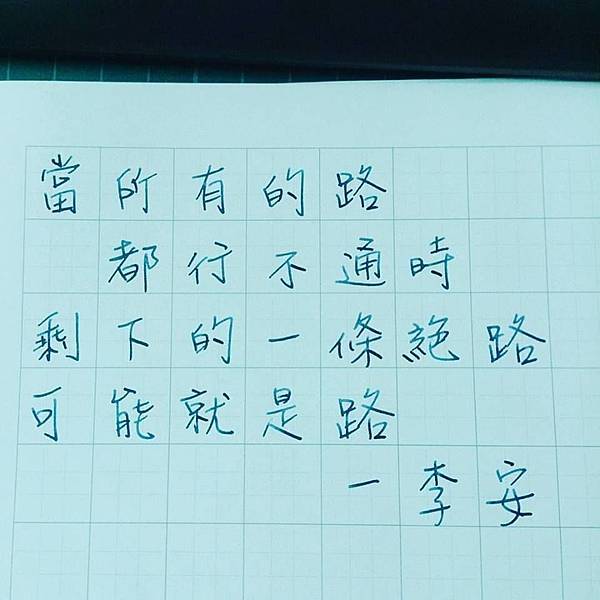 當所有的路
都行不通時
剩下的一條絕路
可能就是路
—李安